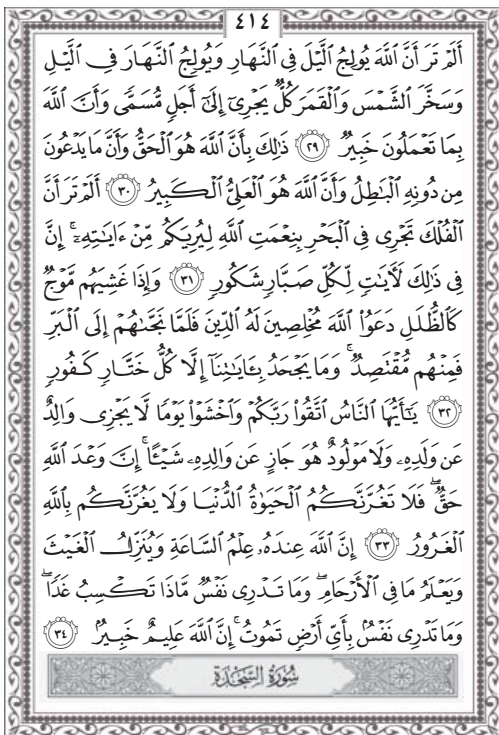 ٤١٤
أَلَمْ تَرَ أَنَّ ٱللَّهَ يُولِجُ ٱلَّيْلَ فِى ٱلنَّهَارِ وَيُولِجُ ٱلنَّهَارَ فِى ٱلَّيْلِ
وَسَخَّرَ ٱلشَّمْسَ وَٱلْقَمَرَ كُلٌّ يَجْرِىٓ إِلَىٰٓ أَجَلٍ مُّسَمًّى وَأَنَّ ٱللَّهَ
بِمَا تَعْمَلُونَ خَبِيرٌ ٢٩ ذَٰلِكَ بِأَنَّ ٱللَّهَ هُوَ ٱلْحَقُّ وَأَنَّ مَا يَدْعُونَ
مِن دُونِهِ ٱلْبَٰطِلُ وَأَنَّ ٱللَّهَ هُوَ ٱلْعَلِىُّ ٱلْكَبِيرُ ٣٠ أَلَمْ تَرَ أَنَّ
ٱلْفُلْكَ تَجْرِى فِى ٱلْبَحْرِ بِنِعْمَتِ ٱللَّهِ لِيُرِيَكُم مِّنْ ءَايَٰتِهِۦٓ ۚ إِنَّ
فِى ذَٰلِكَ لَءَايَٰتٍ لِّكُلِّ صَبَّارٍ شَكُورٍ ٣١ وَإِذَا غَشِيَهُم مَّوْجٌ
كَٱلظُّلَلِ دَعَوُا۟ ٱللَّهَ مُخْلِصِينَ لَهُ ٱلدِّينَ فَلَمَّا نَجَّىٰهُمْ إِلَى ٱلْبَرِّ
فَمِنْهُم مُّقْتَصِدٌ ۚ وَمَا يَجْحَدُ بِـَٔايَٰتِنَآ إِلَّا كُلُّ خَتَّارٍ كَفُورٍ
٣٢ يَٰٓأَيُّهَا ٱلنَّاسُ ٱتَّقُوا۟ رَبَّكُمْ وَٱخْشَوْا۟ يَوْمًا لَّا يَجْزِى وَالِدٌ
عَن وَلَدِهِۦ وَلَا مَوْلُودٌ هُوَ جَازٍ عَن وَالِدِهِۦ شَيْـًٔا ۚ إِنَّ وَعْدَ ٱللَّهِ
حَقٌّ ۖ فَلَا تَغُرَّنَّكُمُ ٱلْحَيَوٰةُ ٱلدُّنْيَا وَلَا يَغُرَّنَّكُم بِٱللَّهِ
ٱلْغَرُورُ ٣٣ إِنَّ ٱللَّهَ عِندَهُۥ عِلْمُ ٱلسَّاعَةِ وَيُنَزِّلُ ٱلْغَيْثَ
وَيَعْلَمُ مَا فِى ٱلْأَرْحَامِ ۖ وَمَا تَدْرِى نَفْسٌ مَّاذَا تَكْسِبُ غَدًا ۖ
وَمَا تَدْرِى نَفْسٌۢ بِأَىِّ أَرْضٍ تَمُوتُ ۚ إِنَّ ٱللَّهَ عَلِيمٌ خَبِيرٌۢ ٣٤
سُورَةُ السَّجْدَةِ